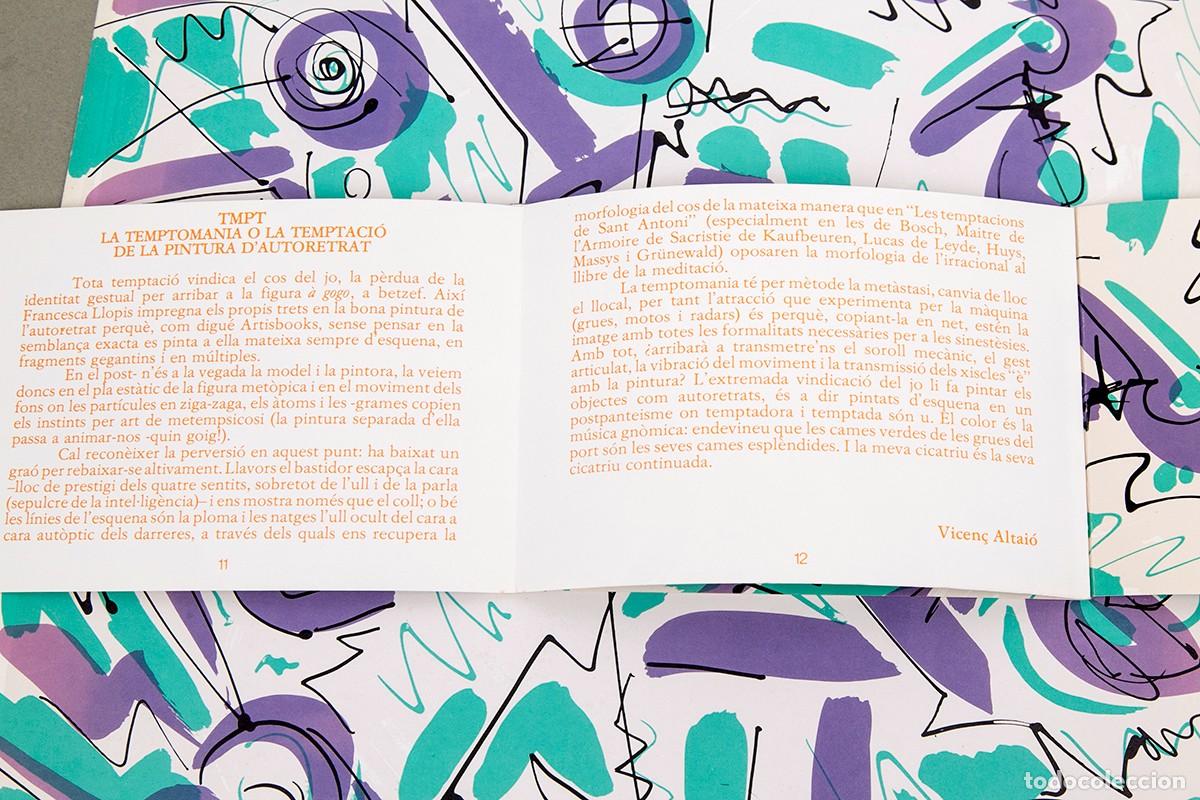 TMPT
LA TEMPTOMANIA O LA TEMPTACIÓ
DE LA PINTURA D'AUTORETRAT
Tota temptació vindica el cos del jo, la pèrdua de la
identitat gestual per arribar a la figura à gogo, a betzef. Així
Francesca Llopis impregna els propis trets en la bona pintura de
l'autoretrat perquè, com digué Artisbooks, sense pensar en la
semblança exacta es pinta a ella mateixa sempre d'esquena, en
fragments gegantins i en múltiples.
En el post- n'és a la vegada la model i la pintora, la veiem
doncs en el pla estàtic de la figura metòpica i en el moviment dels
fons on les partícules en ziga-zaga, els àtoms i les -grames copien
els instints per art de metempsicosi (la pintura separada d'ella
passa a animar-nos -quin goig!).
Cal reconèixer la perversió en aquest punt: ha baixat un
graó per rebaixar-se altivament. Llavors el bastidor escapça la cara
–lloc de prestigi dels quatre sentits, sobretot de l'ull i de la parla
(sepulcre de la intel·ligència)– i ens mostra només que el coll; o bé
les línies de l'esquena són la ploma i les natges l'ull ocult del cara a
cara autòptic dels darreres, a través dels quals ens recupera la
11
morfologia del cos de la mateixa manera que en "Les temptacions
de Sant Antoni" (especialment en les de Bosch, Maitre de
l'Armoire de Sacristie de Kaufbeuren, Lucas de Leyde, Huys,
Massys i Grünewald) oposaren la morfologia de l'irracional al
llibre de la meditació.
La temptomania té per mètode la metàstasi, canvia de lloc
el llocal, per tant l'atracció que experimenta per la màquina
(grues, motos i radars) és perquè, copiant-la en net, estén la
imatge amb totes les formalitats necessàries per a les sinestèsies.
Amb tot, ¿arribarà a transmetre'ns el soroll mecànic, el gest
articulat, la vibració del moviment i la transmissió dels xiscles "è"
amb la pintura? L'extremada vindicació del jo li fa pintar els
objectes com autoretrats, és a dir pintats d'esquena en un
postpanteisme on temptadora i temptada són u. El color és la
música gnòmica: endevineu que les cames verdes de les grues del
port són les seves cames esplèndides. I la meva cicatriu és la seva
cicatriu continuada.
Vicenç Altaió
12
todocoleccion